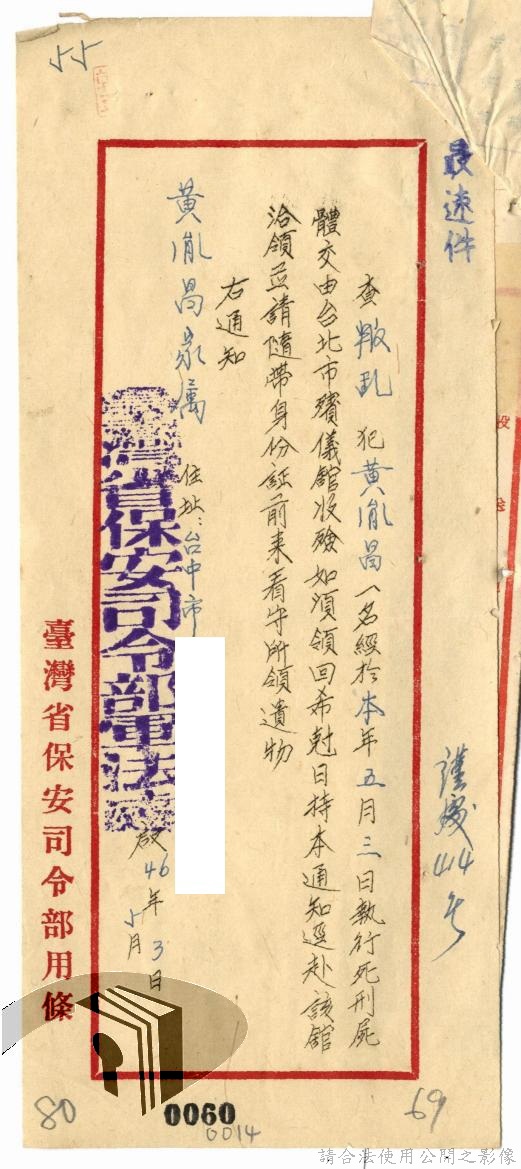 55
最速件
謹緩414号
查叛亂犯黃胤昌一名經於本年五月三日執行死刑屍
體交由台北市殯儀館收殮如須領回希尅日持本通知逕赴該館
洽領並請隨帶身份証前来看守所領遺物
右通知
黃胤昌家属 住址:台中市
臺灣省保安司令部軍法處
啟 46年5月3日
臺灣省保安司令部用條
80
0060
0014
69
請合法使用公開之影像